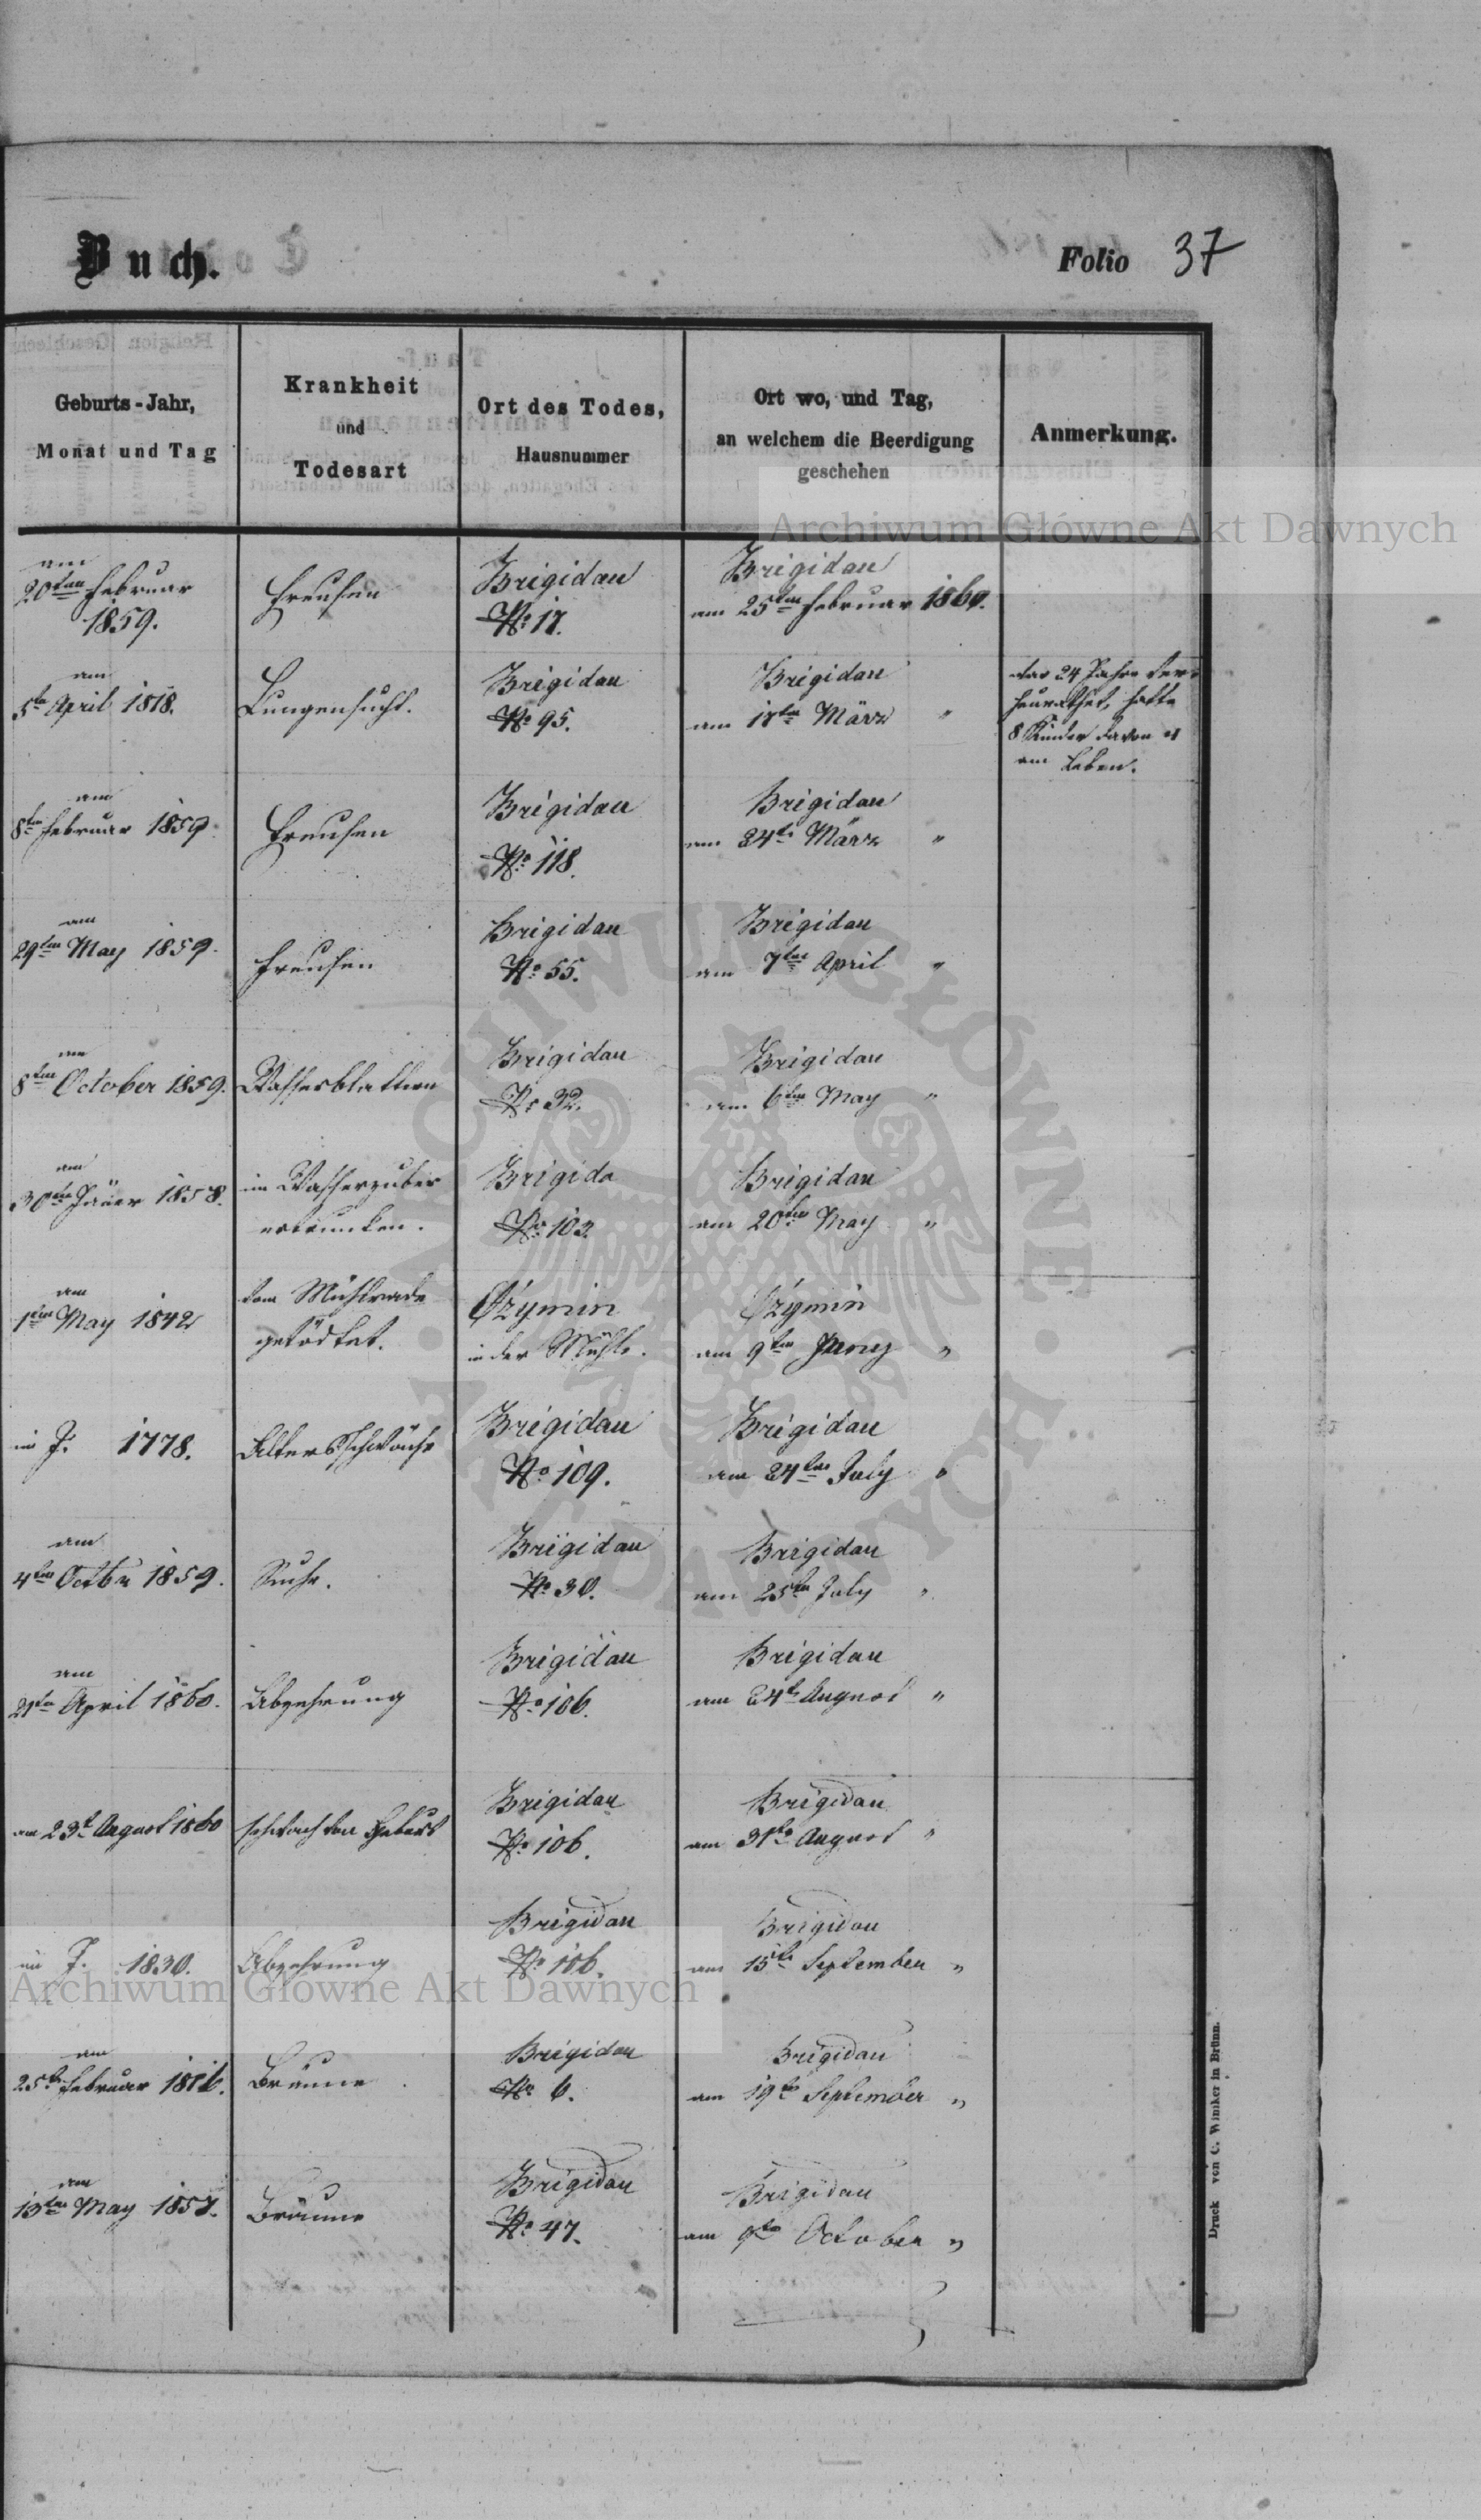 Buch.
Folio 37
Geburts-Jahr,
Monat und Tag
Krankheit
und
Todesart
Ort des Todes,
Hausnummer
Ort wo, und Tag,
an welchem die Beerdigung
geschehen
Anmerkung.
Archiwum Główne Akt Dawnych
am
20ten Februar
1859.
Freusen
Brigidau
No 17.
Brigidau
am 25ten Februar 1860.
am
5ten April 1818.
Lungensucht.
Brigidau
No 95.
Brigidau
am 17ten März "
war 24 Jahre ver-
heurathet, hatte
8 Kinder davon 4
am Leben.
am
8ten Februar 1859
Freusen
Brigidau
No 118.
Brigidau
am 24ten März "
am
29ten May 1859.
Freusen
Brigidau
No 55.
Brigidau
am 7ten April "
am
8ten October 1859.
Wasserblattern
Brigidau
No 32.
Brigidau
am 6ten May "
am
30ten Jäner 1858.
im Wasserzuber
ertrunken.
Brigida
No 103
Brigidau
am 20ten May "
am
1ten May 1842
vom Mühlrade
getödtet.
Czymin
in der Mühle.
Czymin
am 9ten Juny "
im J. 1778.
Altersschwäche
Brigidau
No 109.
Brigidau
am 24ten July "
am
4ten Octbr 1859.
Ruhr.
Brigidau
No 30.
Brigidau
am 25ten July "
am
21ten April 1860.
Abzehrung
Brigidau
No 106.
Brigidau
am 24t August "
am 23t August 1860
schwach von Geburt
Brigidau
No 106.
Brigidau
am 31ten August "
im J. 1830.
Abzehrung
Brigidau
No 106.
Brigidau
am 15ten September "
Archiwum Główne Akt Dawnych
am
25ten Februar
Bräune
Brigidau
No 6.
Brigidau
am 19ten September "
am
13ten May 1857.
Bräune
Brigidau
No 47.
Brigidau
am 9ten October "
Druck von C. Winiker in Brünn.
ARCHIWUM GŁÓWNE AKT DAWNYCH